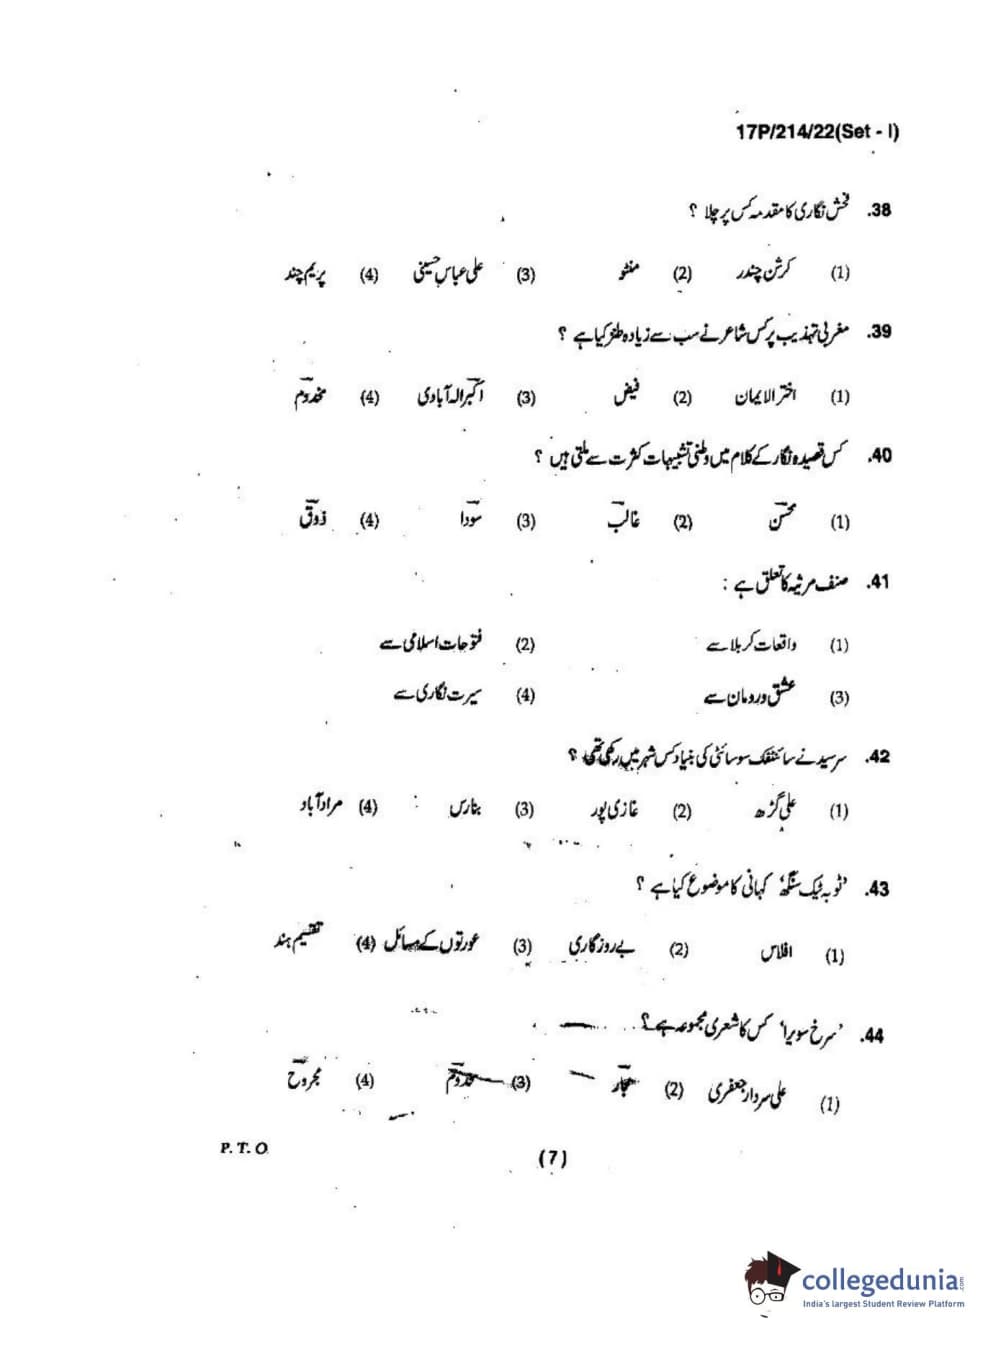 17P/214/22(Set - I)
38. فحش نگاری کا مقدمہ کس پر چلا ؟
(1) کرشن چندر (2) منٹو (3) علی عباس حسینی (4) پریم چند
39. مغربی تہذیب پر کس شاعر نے سب سے زیادہ طنز کیا ہے ؟
(1) اختر الایمان (2) فیض (3) اکبر الہ آبادی (4) مخدوم
40. کس قصیدہ نگار کے کلام میں وطنی تشبیہات کثرت سے ملتی ہیں ؟
(1) محسن (2) غالب (3) سودا (4) ذوق
41. صنف مرثیہ کا تعلق ہے :
(1) واقعات کربلا سے (2) فتوحات اسلامی سے
(3) عشق و رومان سے (4) سیرت نگاری سے
42. سرسید نے سائنٹفک سوسائٹی کی بنیاد کس شہر میں رکھی تھی ؟
(1) علی گڑھ (2) غازی پور (3) بنارس (4) مراد آباد
43. ’ٹوبہ ٹیک سنگھ‘ کہانی کا موضوع کیا ہے ؟
(1) افلاس (2) بے روزگاری (3) عورتوں کے مسائل (4) تقسیم ہند
44. ’سرخ سویرا‘ کس کا شعری مجموعہ ہے؟
(1) علی سردار جعفری (2) مجاز (3) مخدوم (4) مجروح
P. T. O.
(7)
collegedunia.com
India's largest Student Review Platform